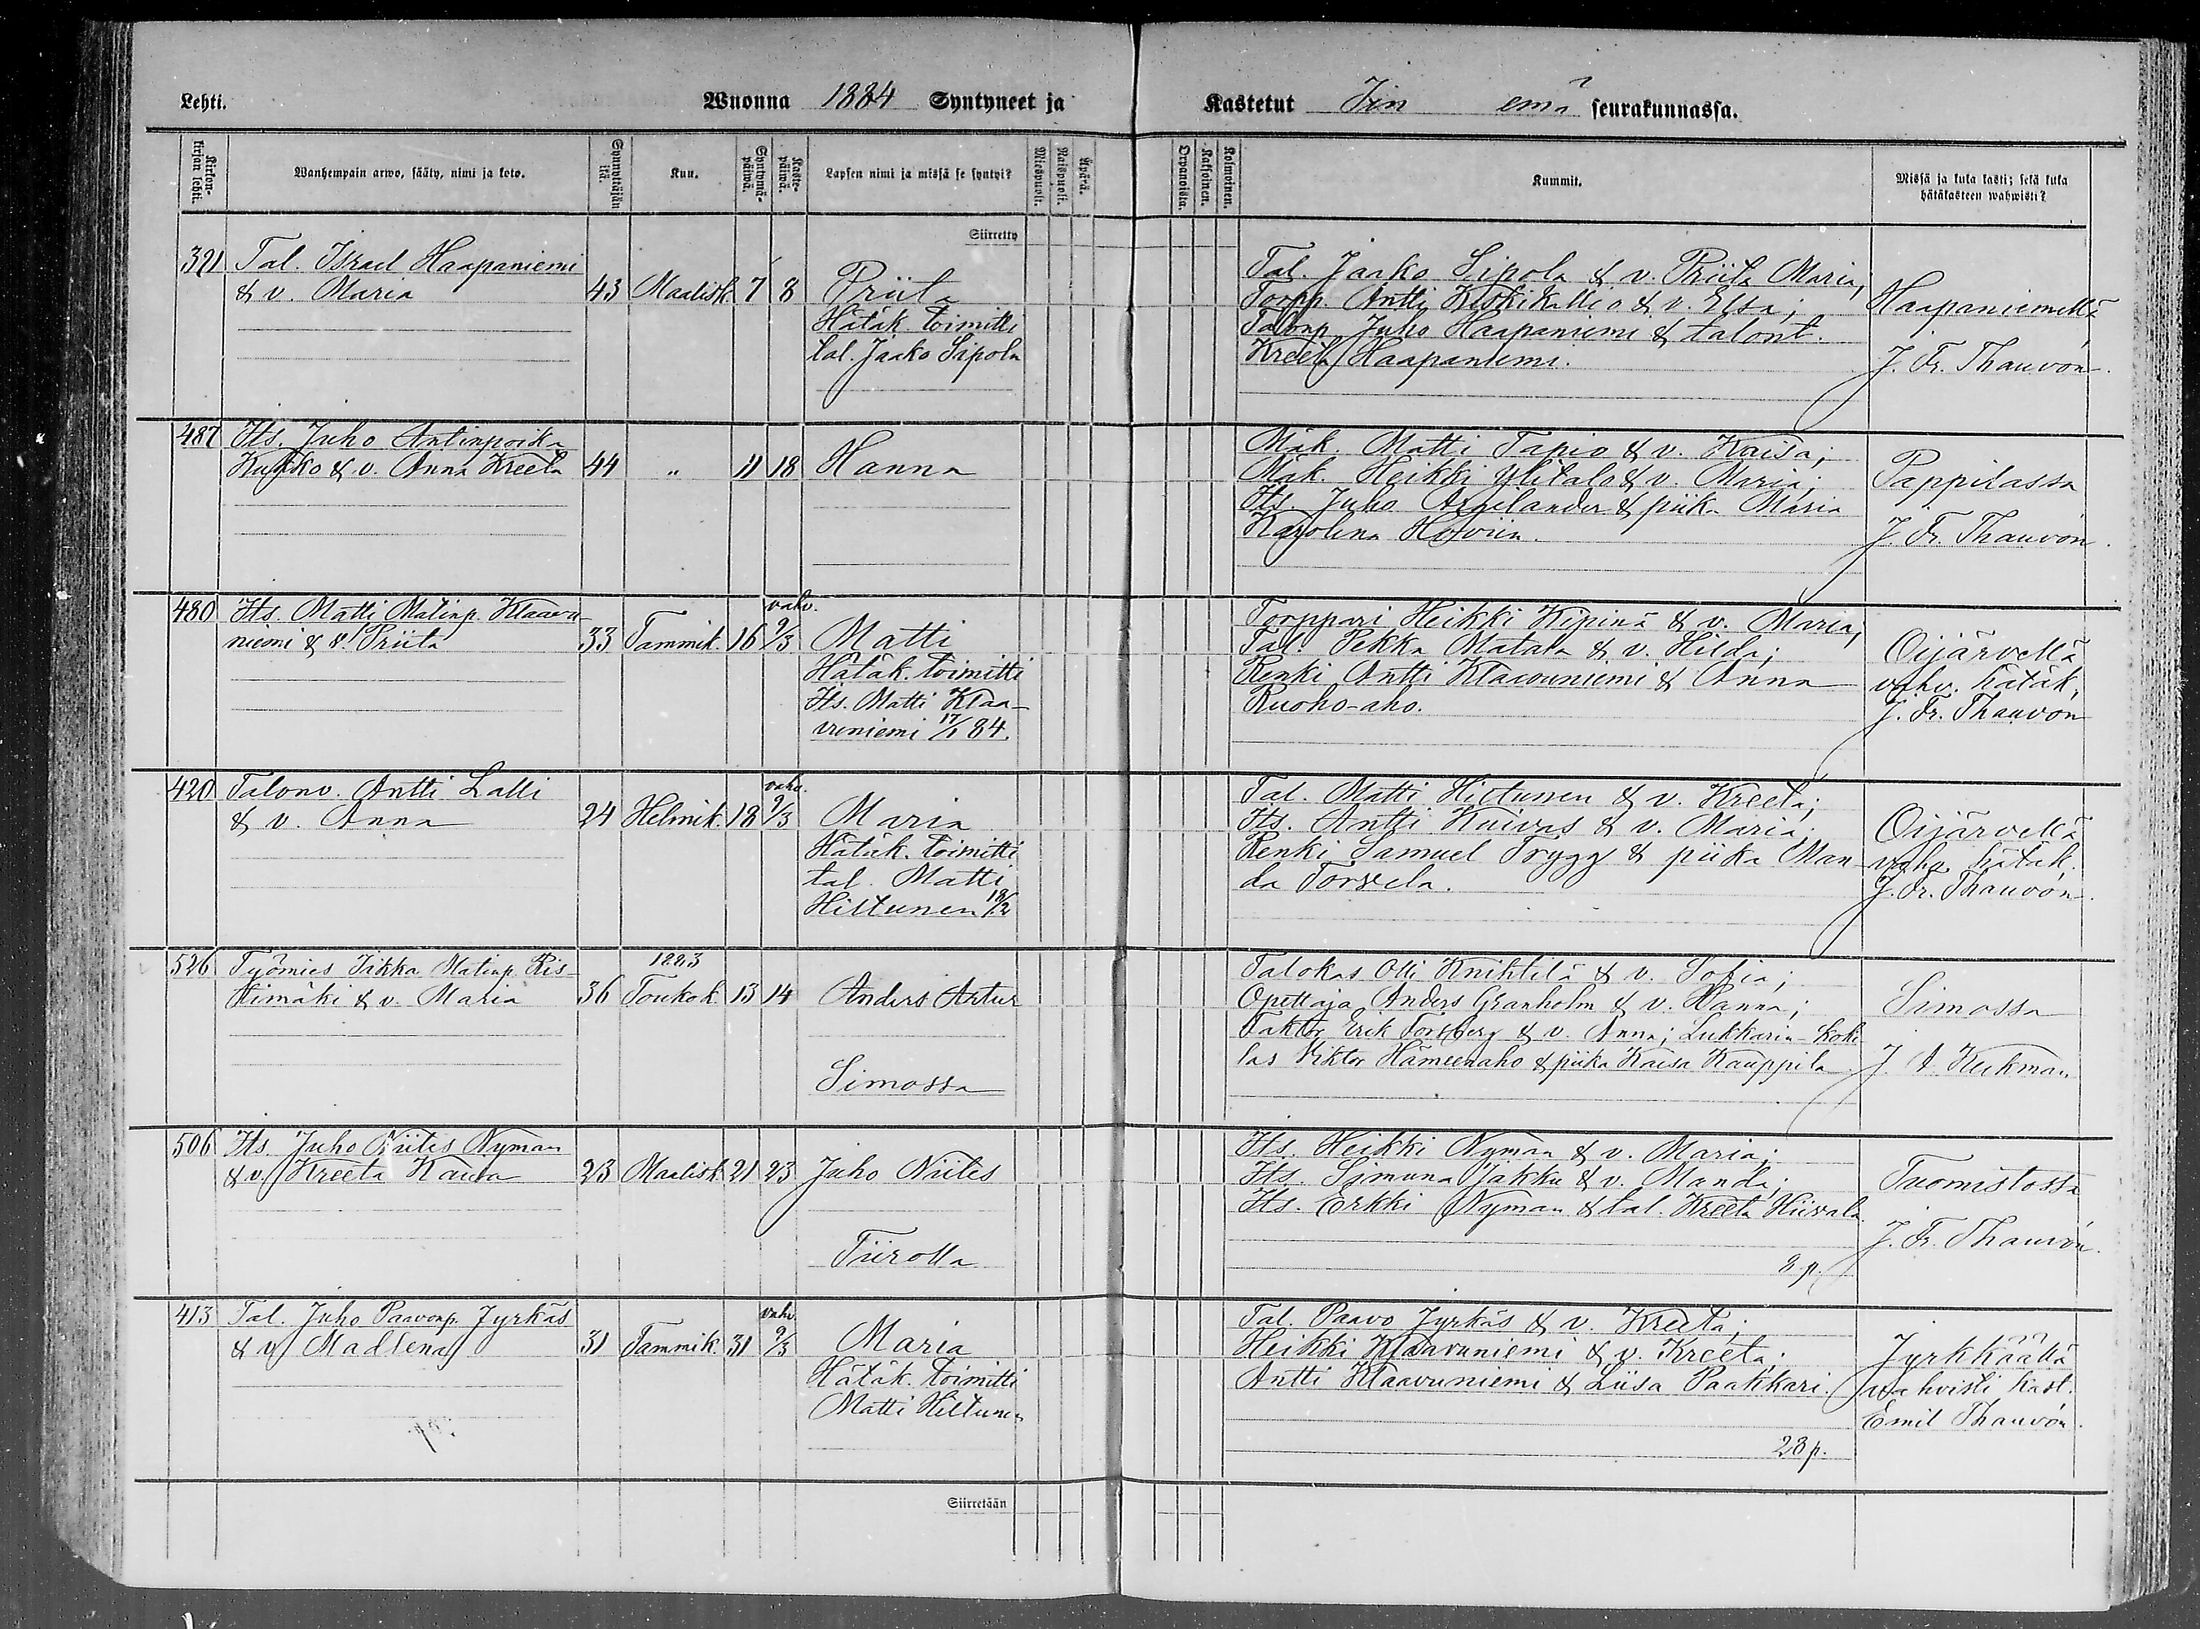 Lehti. Wuonna 1884 Syntyneet ja Kastetut Iin emä seurakunnassa.
Kirkon-kirjan lehti. Wanhempain arwo, sääty, nimi ja koto. Synnyttäjän ikä. Kuu. Syntymä-päivä. Kaste-päivä. Lapsen nimi ja missä se syntyi? Miespuoli. Vaispuoli. Äpärä. Orpanoista. Kaksoinen. Kolmoinen. Kummit. Missä ja kuka kasti; sekä kuka hätäkasteen wahwisti?
Siirretty
391 Tal. Israel Haapaniemi
& v. Maria 43 Maalisk. 7 8 Priita
Hätäk. toimitti
tal. Jaako Sipola
Tal. Jaako Sipola & v. Priita Maria;
Torpp. Antti Koskikallio & v. Elsa;
Talonp. Juho Haapaniemi & talont.
Kreeta Haapaniemi.
Haapaniemellä
J. Fr. Thauvón.
487 Its. Juho Antinpoika
Kujko & v. Anna Kreeta 44 " 11 18 Hanna
Mäk. Matti Tapio & v. Kaisa;
Mäk. Heikki Ylitalo & v. Maria;
Its. Juho Argelander & piika Maria
Karolina Hofviin.
Pappilassa
J. Fr. Thauvón.
480 Its. Matti Matinp. Klaavu-
niemi & v. Priita 33 Tammik. 16 vahv. 9/3 Matti
Hätäk. toimitti
Its. Matti Klaa-
vuniemi 17/1 84.
Torppari Heikki Kipinä & v. Maria;
Tal. Pekka Matala & v. Hilda;
Renki Antti Klaavuniemi & Anna
Ruoho-aho.
Oijärvellä
vahv. hätäk,
J. Fr. Thauvón
420 Talonv. Antti Lalli
& v. Anna 24 Helmik. 18 vahv. 9/3 Maria
Hätäk. toimitti
tal. Matti
Hiltunen 18/2
Tal. Matti Hiltunen & v. Kreeta;
Its. Antti Kuivas & v. Maria;
Renki Samuel Trygg & piika Man-
da Torvela.
Oijärvellä
vahv. hätäk.
J. Fr. Thauvón.
526 Työmies Iikka Matinp. Ris-
timäki & v. Maria 36 1883 Toukok. 13 14 Anders Artur
Simossa
Talokas Olli Knihtilä & v. Sofia;
Opettaja Anders Granholm & v. Hanna;
Faktor Erik Forsberg & v. Anna; Lukkarin-koke-
las Viktor Hämeenaho & piika Kaisa Kauppila
Simossa
J. I. Keckman
506 Its. Juho Niiles Nyman
& v. Kreeta Kaisa 23 Maalisk. 21 23 Juho Niiles
Tiirolla
Its. Heikki Nyman & v. Maria;
Its. Simuna Jakku & v. Manda;
Its. Erkki Nyman & tal. Kreeta Hiivala.
8 p.
Tuomistossa
J. Fr. Thauvón.
413 Tal. Juho Paavonp. Jyrkäs
& v. Madlena 31 Tammik. 31 vahv. 9/3 Maria
Hätäk. toimitti
Matti Hiltunen
Tal. Paavo Jyrkäs & v. Kreeta;
Heikki Klaavuniemi & v. Kreeta;
Antti Klaavuniemi & Liisa Paakkari.
28 p.
Jyrkkäällä
vahvisti kast.
Emil Thauvón.
Siirretään